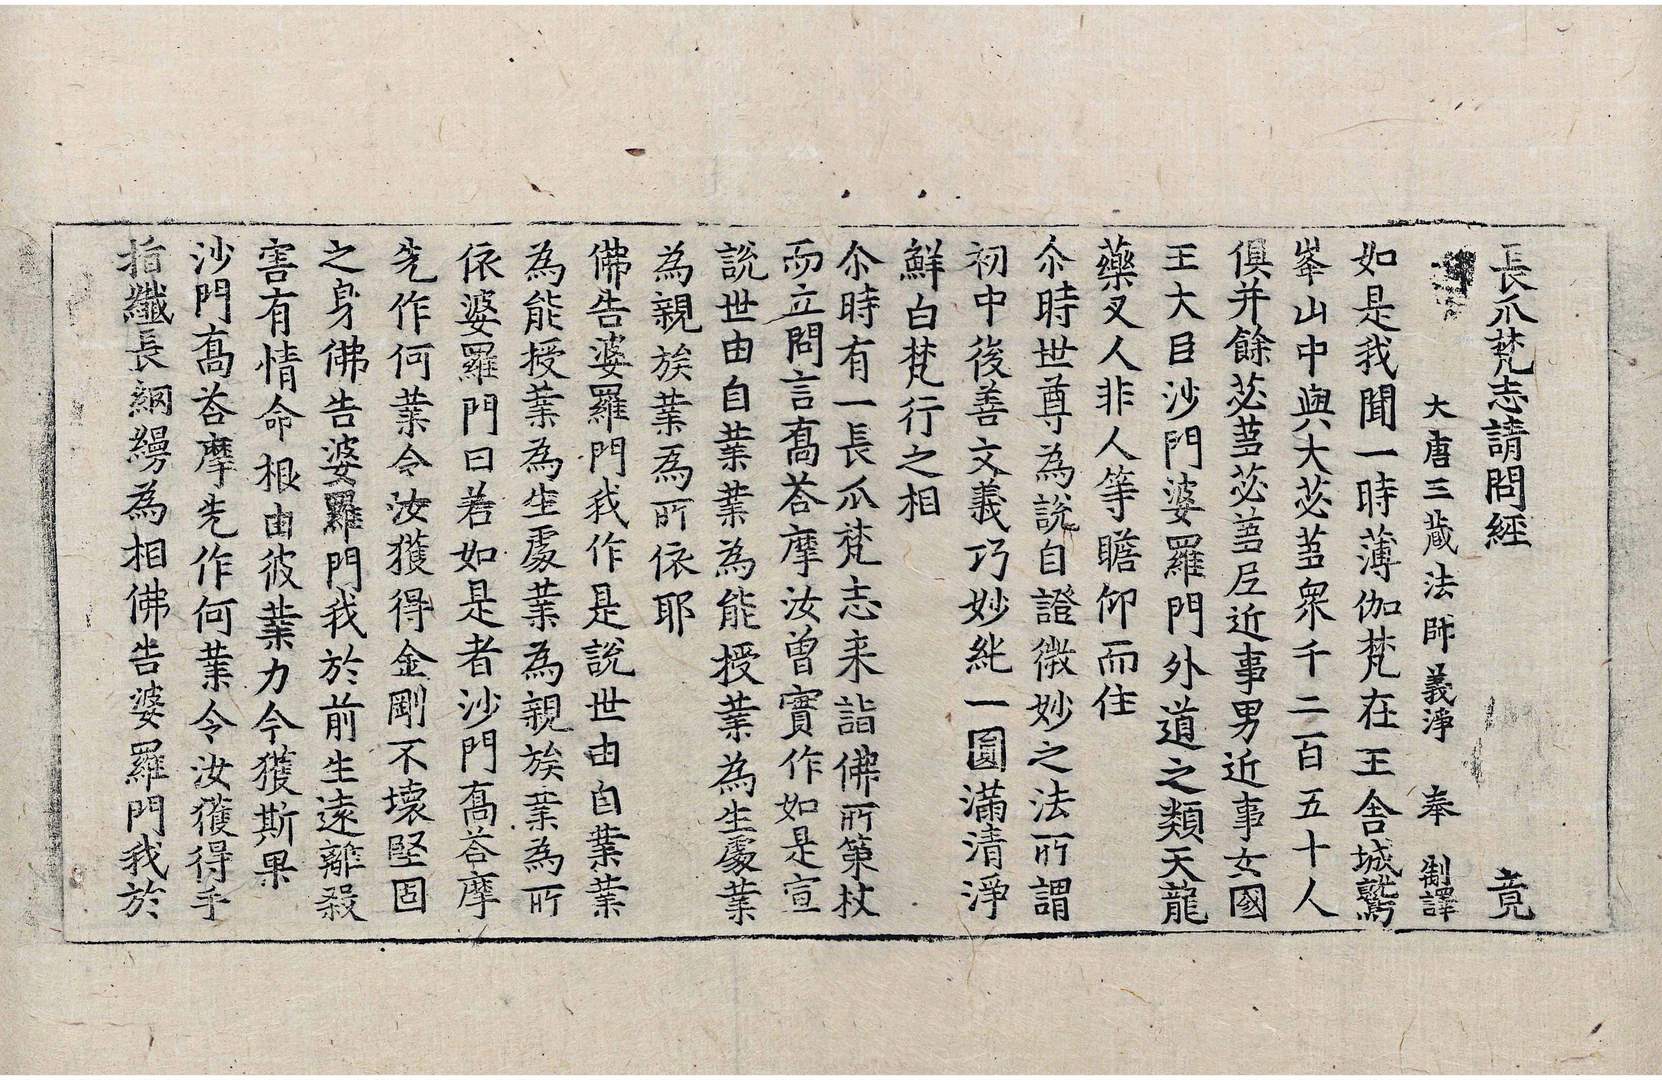 長爪梵志請問經 竟
大唐三蔵法師義淨 奉 制譯
如是我聞一時薄伽梵在王舍城鷲
峯山中與大苾蒭衆千二百五十人
俱并餘苾蒭苾蒭尼近事男近事女國
王大臣沙門婆羅門外道之類天龍
藥叉人非人等瞻仰而住
尒時世尊為說自證微妙之法所謂
初中後善文義巧妙純一圓滿清淨
鮮白梵行之相
尒時有一長爪梵志来詣佛所策杖
而立問言喬荅摩汝曾實作如是宣
說世由自業業為能授業為生處業
為親族業為所依耶
佛告婆羅門我作是說世由自業業
為能授業為生處業為親族業為所
依婆羅門曰若如是者沙門喬荅摩
先作何業令汝獲得金剛不壞堅固
之身佛告婆羅門我於前生遠離殺
害有情命根由彼業力今獲斯果
沙門喬荅摩先作何業令汝獲得手
指纖長網縵為相佛告婆羅門我於